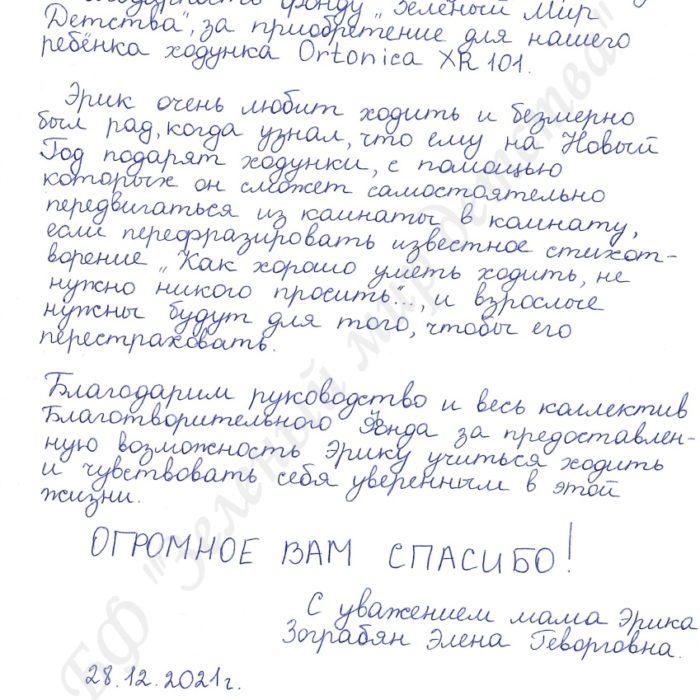 благодарность фонду „Зелёный Мир
Детства", за приобретение для нашего
ребёнка ходунка Ortonica XR 101.
Эрик очень любит ходить и безмерно
был рад, когда узнал, что ему на Новый
Год подарят ходунки, с помощью
которых он сможет самостоятельно
передвигаться из комнаты в комнату,
если перефразировать известное стихот-
ворение „Как хорошо уметь ходить, не
нужно никого просить"..., и взрослые
нужны будут для того, чтобы его
перестраховать.
Благодарим руководство и весь коллектив
Благотворительного Фонда за предоставлен-
ную возможность Эрику учиться ходить
и чувствовать себя уверенным в этой
жизни.
ОГРОМНОЕ ВАМ СПАСИБО!
С уважением мама Эрика
Зограбян Элена Геворговна.
28.12.2021г.
БФ "Зеленый мир детства"